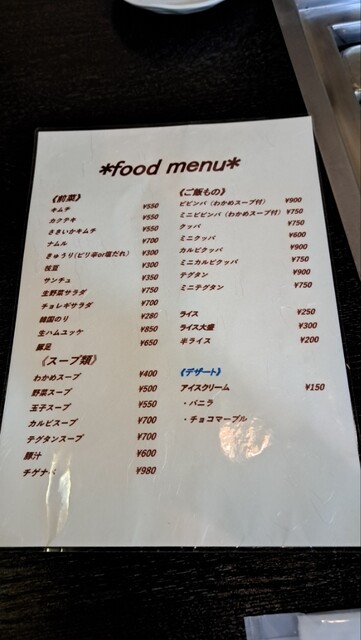 *food menu*
《前菜》
キムチ ¥550
カクテキ ¥550
さきいかキムチ ¥550
ナムル ¥700
きゅうり(ピリ辛or塩だれ) ¥300
枝豆 ¥300
サンチュ ¥350
生野菜サラダ ¥750
チョレギサラダ ¥700
韓国のり ¥280
生ハムユッケ ¥850
豚足 ¥650
《スープ類》
わかめスープ ¥400
野菜スープ ¥500
玉子スープ ¥550
カルビスープ ¥700
テグタンスープ ¥700
豚汁 ¥600
チゲナベ ¥980
《ご飯もの》
ビビンバ（わかめスープ付） ¥900
ミニビビンバ（わかめスープ付） ¥750
クッパ ¥750
ミニクッパ ¥600
カルビクッパ ¥900
ミニカルビクッパ ¥750
テグタン ¥900
ミニテグタン ¥750
ライス ¥250
ライス大盛 ¥300
半ライス ¥200
《デザート》
アイスクリーム ¥150
・バニラ
・チョコマーブル